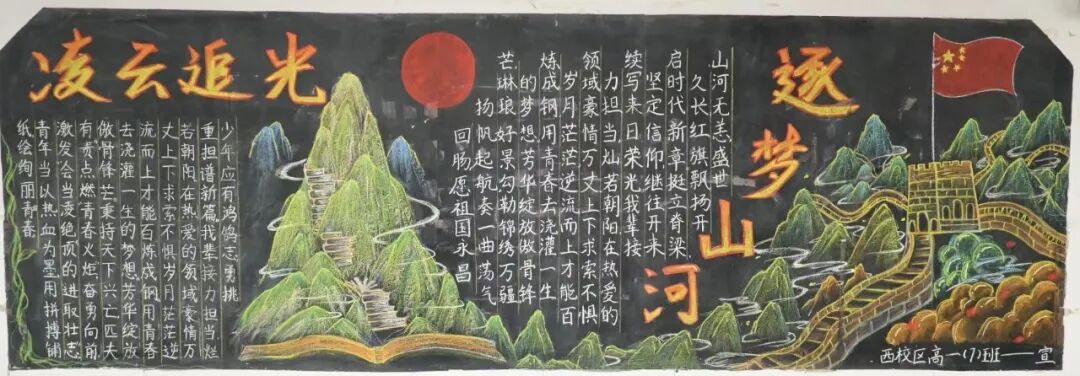 凌云追光
逐梦山河
山河无恙盛世
久长红旗飘扬开
启时代新章挺立脊梁
坚定信仰继往开来
续写来日荣光我辈接
力担当灿若朝阳在热爱的
领域豪情万丈上下求索不惧
岁月茫茫逆流而上才能百
炼成钢用青春去浇灌一生
的梦想芳华绽放傲骨锋
芒琳琅好景勾勒锦绣万疆
扬帆起航奏一曲荡气
回肠愿祖国永昌
少年应有鸿鸽志勇挑
重担谱新篇我辈接力担当烂
若朝阳在热爱的领域豪情万
丈上下求索不惧岁月茫茫逆
流而上才能百炼成钢用青春
去浇灌一生的梦想芳华绽放
傲骨锋芒秉持天下兴亡匹夫
有责点燃青春火炬奋勇向前
激发会当凌绝顶的进取壮志
青年当以热血为墨用拼搏铺
纸绘绚丽青春
西校区高一(7)班——宣